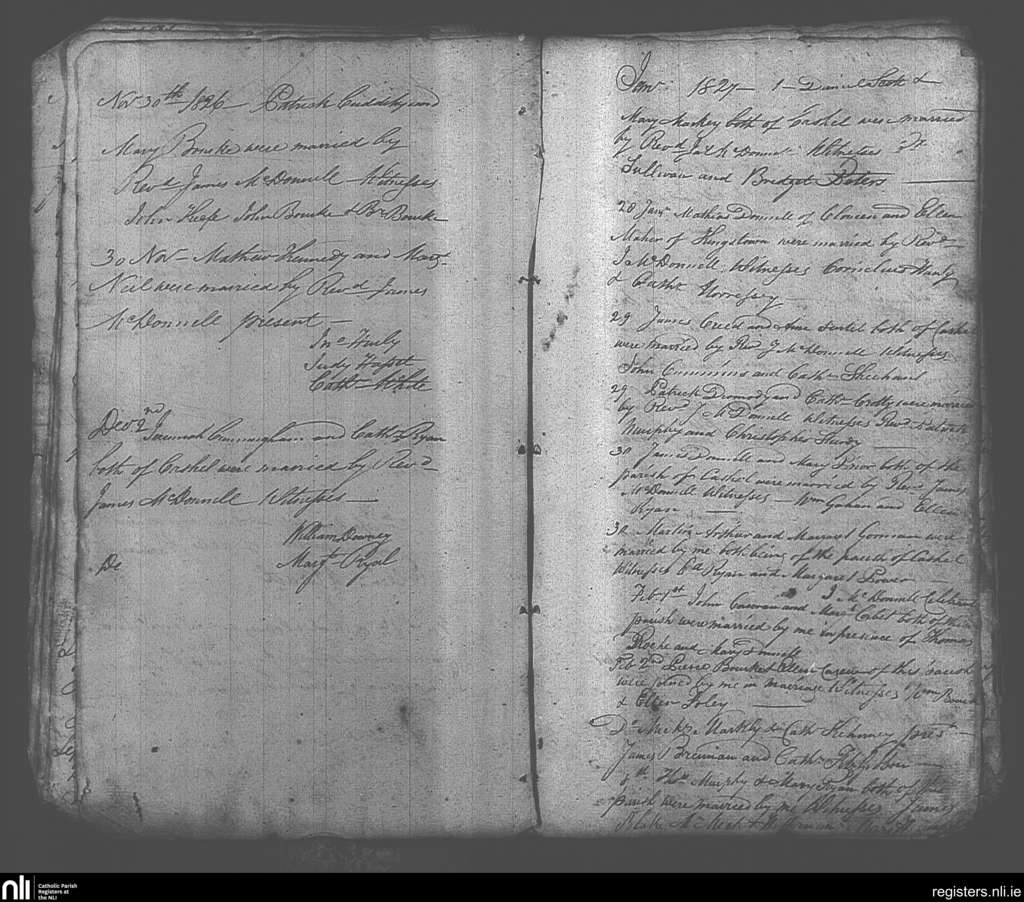 Nov 30th 1826 Patrick Cuddihy and
Mary Bourke were married by
Revd James McDonnell Witnesses
John Keefe John Bourke & Br Bourke
30 Nov - Mathew Kennedy and Margt
Neil were married by Revd James
McDonnell present -
Jno Hurly
Judy
Cath White
Decr 2nd Jeremiah Cunningham and Cath Ryan
both of Cashel were married by Revd
James McDonnell Witnesses -
William Downey
Margt Ryal
De
Jany 1827 - 1 - Daniel Scott &
Mary Mackey both of Cashel were married
by Revd Jas McDonnell Witnesses
Sullivan and Bridget Peters
28 Jany Mathias Donnell of and Ellen
Maher of Kingstown were married by Revd
J McDonnell Witnesses Cornelius Hurly
& Cathe
29 James Creed and Ann both of Cashel
were married by Rev J McDonnell Witnesses
John Cummins and Cath Sheehan
29 Patrick Dromody and Cath Crotty were married
by Revd J McDonnell Witnesses Revd Patrick
Murphy and Christopher
30 James Donnell and Mary Prior both of the
parish of Cashel were married by Revd James
McDonnell Witnesses - Wm Gahan and Ellen
Ryan
30 Martin Arthur and Margaret Gorman were
married by me both being of the parish of Cashel
Witnesses Ryan and Margaret Power
J McDonnell
Feb 1st John and Mary both of this
parish were married by me in presence of Thomas
Roche and Mary Donnell
Feb 2nd Pierce Bourke & Ellen of this parish
were joined by me in marriage Witnesses Wm Bourke
& Ellen Foley
Do Michl & Cath prest
James Brennan and Cath
Thos Murphy & Mary Ryan both of this
parish were married by me Witnesses James
Blake
nli
Catholic Parish
Registers at
the NLI
registers.nli.ie